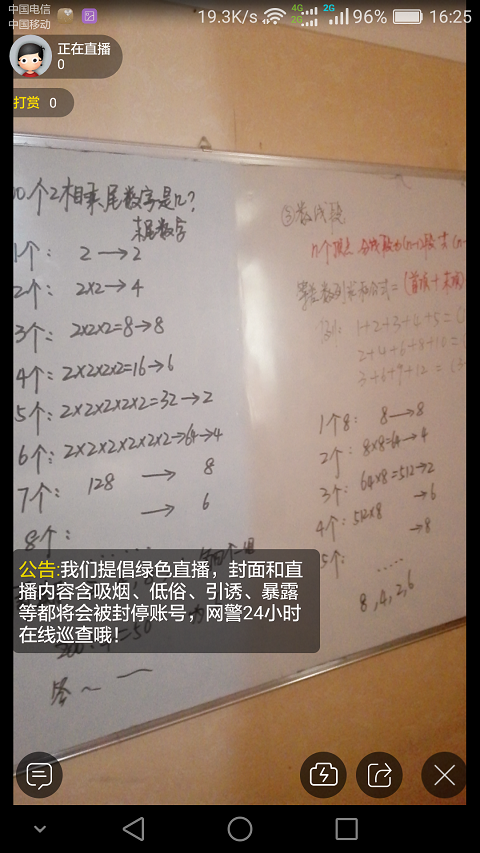 中国电信
中国移动
19.3K/s
4G
2G
2G
96%
16:25
正在直播
0
打赏 0
00个2相乘尾数字是几?
末尾数字
1个: 2→2
2个: 2×2→4
3个: 2×2×2=8→8
4个: 2×2×2×2=16→6
5个: 2×2×2×2×2=32→2
6个: 2×2×2×2×2×2→64→4
7个: 128 → 8
8个: → 6
……
公告:我们提倡绿色直播，封面和直
播内容含吸烟、低俗、引诱、暴露
等都将会被封停账号，网警24小时
在线巡查哦!
=50
答~
③数线段
n个顶点 分线段为(n-1)段 共(n-
等差数列求和公式=(首项+末项)
例: 1+2+3+4+5=(
2+4+6+8+10=(
3+6+9+12=(3+
1个8: 8→8
2个: 8×8=64→4
3个: 64×8=512→2
4个: 512×8 →6
5个: →8
……
8,4,2,6